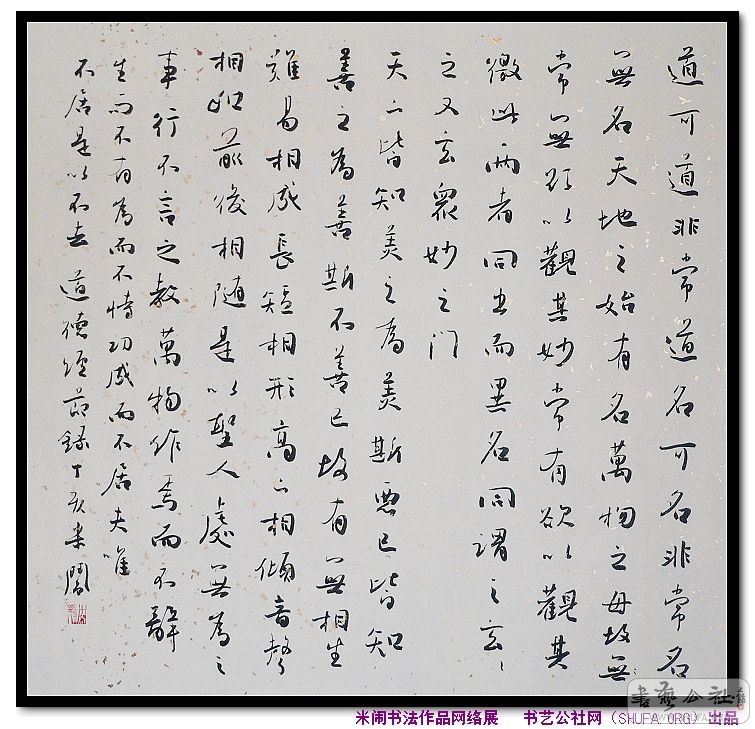 道可道非常道名可名非常名
無名天地之始有名萬物之母故無
常無欲以觀其妙常有欲以觀其
徼此兩者同出而異名同謂之玄〻
之又玄衆妙之门
天下皆知美之為美斯恶已皆知
善之為善斯不善已故有無相生
難易相成長短相形高下相傾音聲
相和前後相随是以聖人處無為之
事行不言之教萬物作焉而不辭
生而不有為而不恃功成而不居夫唯
不居是以不去 道德經節録丁亥米鬧
書藝公社
米闹书法作品网络展 书艺公社网（SHUFA.ORG）出品